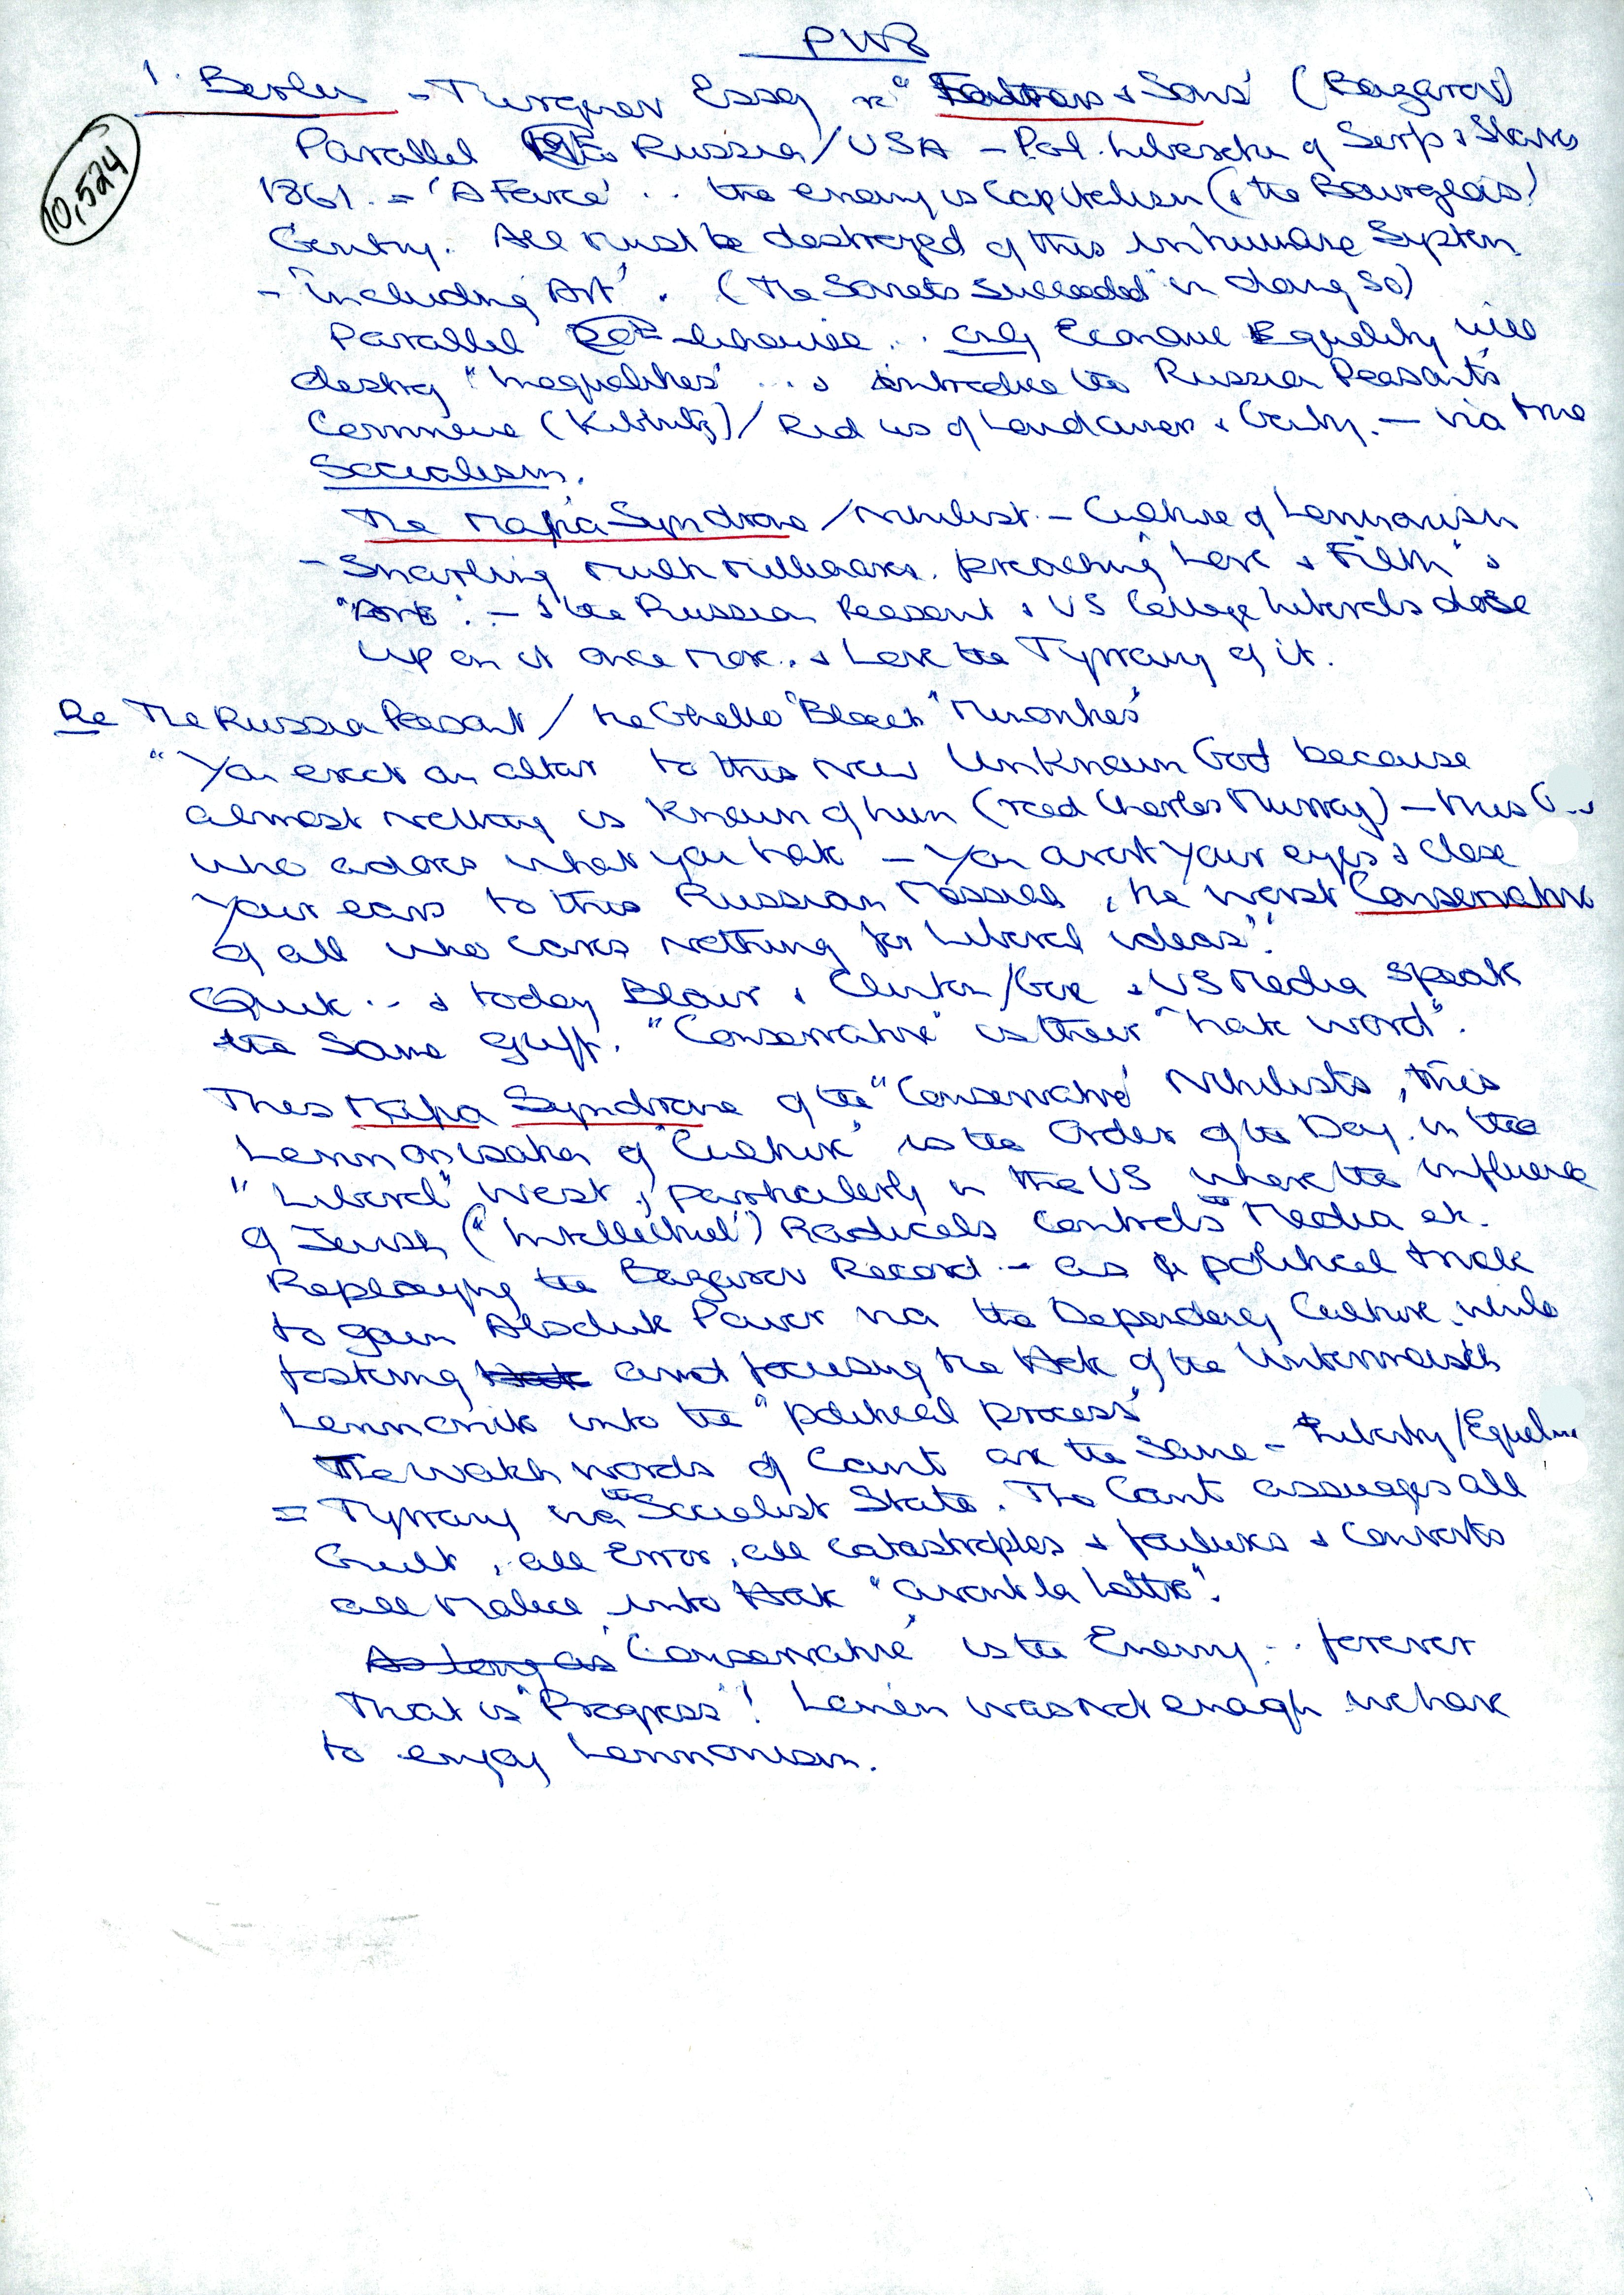 PWB
10,524
1. Berlin - Turgenev Essay re "Fathers & Sons" (Bazarov)
Parallel 19c Russia/USA - Pol. Liberation of Serfs & Slaves
1861. = 'A Farce' .. the enemy is Capitalism (& the Bourgeois!
Gentry. All must be destroyed of this inhumane System
- "including Art". (The Soviets "succeeded" in doing so)
Parallel 20c likewise .. only Economic Equality will
destroy "Inequalities" ... & introduce the Russian Peasants
Commune (Kibbutz) / Rid us of Landowner & Gentry. - via true
Socialism.
The Mafia Syndrome / Nihilist. - Culture of Lennonism
- Snarling multi millionaires. preaching Love & "Filth" &
"Art". - & the Russian Peasant & US College Liberals dose
up on it once more.. & Love the Tyranny of it.
Re The Russian Peasant / the Ghetto "Black" "Minorities"
"You erect an altar to this new Unknown God because
almost nothing is known of him (read Charles Murray) - this
who adores what you hate - You avert your eyes & close
your ears to this Russian Messiah, the worst Conservative
of all who cares nothing for Liberal ideas".
Quite .. & today Blair & Clinton/Gore & US Media speak
the same guff. "Conservative" is their "hate word".
This Mafia Syndrome of the "Conservative" Nihilists, this
Lennonisation of "Culture" is the Order of the Day in the
"Liberal" West, particularly in the US where the influence
of Jewish ("Intellectual") Radicals controls the Media etc.
Replaying the Bazarov Record - as a political trick
to gain Absolute Power via the Dependency Culture, while
fostering Hate and focusing the Hate of the Untermensch
Lennonite into the "political process"
The watch words of Cant are the same - Liberty/Equality
= Tyranny via the Socialist State. The Cant assuages all
Guilt, all Error, all catastrophes & failures & converts
all Malice into Hate "avant la lettre".
As long as 'Conservative' is the Enemy .. forever
That is "Progress"! Lenin was not enough we have
to enjoy Lennonism.